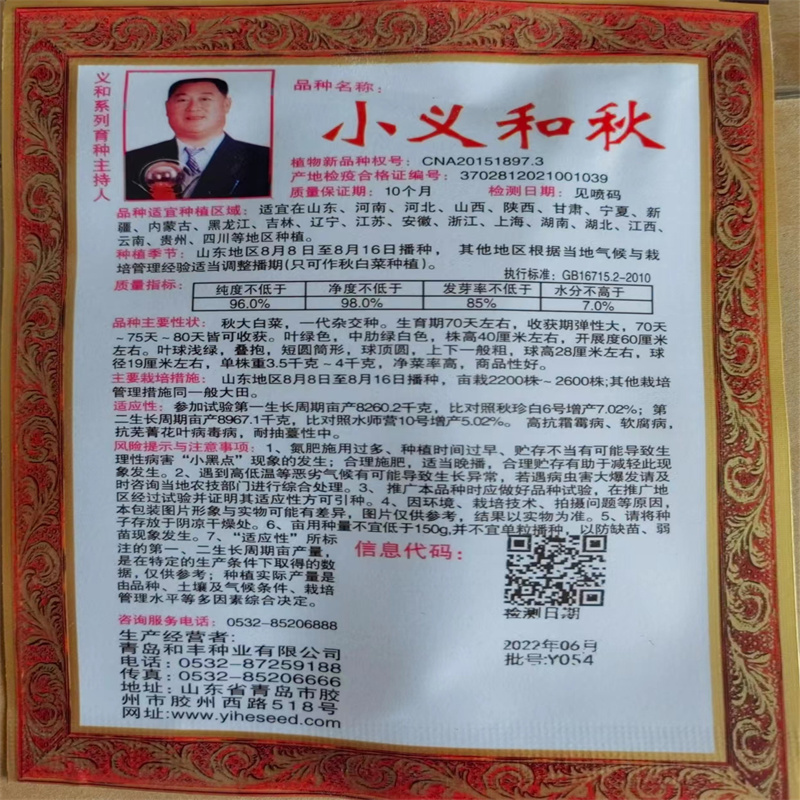 义和系列育种主持人
品种名称：
小义和秋
植物新品种权号：CNA20151897.3
产地检疫合格证编号：3702812021001039
质量保证期：10个月 检测日期：见喷码
品种适宜种植区域：适宜在山东、河南、河北、山西、陕西、甘肃、宁夏、新
疆、内蒙古、黑龙江、吉林、辽宁、江苏、安徽、浙江、上海、湖南、湖北、江西、
云南、贵州、四川等地区种植。
种植季节：山东地区8月8日至8月16日播种， 其他地区根据当地气候与栽
培管理经验适当调整播期(只可作秋白菜种植)。
执行标准：GB16715.2-2010
质量指标： 纯度不低于 净度不低于 发芽率不低于 水分不高于
96.0% 98.0% 85% 7.0%
品种主要性状： 秋大白菜，一代杂交种。生育期70天左右，收获期弹性大，70天
~75天~80天皆可收获。叶绿色，中肋绿白色，株高40厘米左右，开展度60厘米
左右。叶球浅绿，叠抱，短圆筒形，球顶圆，上下一般粗，球高28厘米左右，球
径19厘米左右，单株重3.5千克~4千克，净菜率高，商品性好。
主要栽培措施： 山东地区8月8日至8月16日播种，亩栽2200株~2600株;其他栽培
管理措施同一般大田。
适应性：参加试验第一生长周期亩产8260.2千克，比对照秋珍白6号增产7.02%；第
二生长周期亩产8967.1千克，比对照水师营10号增产5.02%。 高抗霜霉病、软腐病，
抗芜菁花叶病毒病，耐抽薹性中。
风险提示与注意事项：1、氮肥施用过多、种植时间过早、贮存不当有可能导致生
理性病害“小黑点”现象的发生；合理施肥，适当晚播，合理贮存有助于减轻此现
象发生。2、遇到高低温等恶劣气候有可能导致生长异常，若遇病虫害大爆发请及
时咨询当地农技部门进行综合处理。3、推广本品种时应做好品种试验，在推广地
区经过试验并证明其适应性方可引种。4、因环境、栽培技术、拍摄问题等原因，
本包装图片形象与实物可能有差异，图片仅供参考，结果以实物为准。5、请将种
子存放于阴凉干燥处。6、亩用种量不宜低于150g,并不宜单粒播种，以防缺苗、弱
苗现象发生。7、“适应性”所标
注的第一、二生长周期亩产量，
是在特定的生产条件下取得的数
据，仅供参考；种植实际产量是
由品种、土壤及气候条件、栽培
管理水平等多因素综合决定。
信息代码：
检测日期
2022年06月
批号:Y054
咨询服务电话： 0532-85206888
生产经营者：
青岛和丰种业有限公司
电话：0532-87259188
传真：0532-85206666
地址：山东省青岛市胶
州市胶州西路518号
网址:www.yiheseed.com